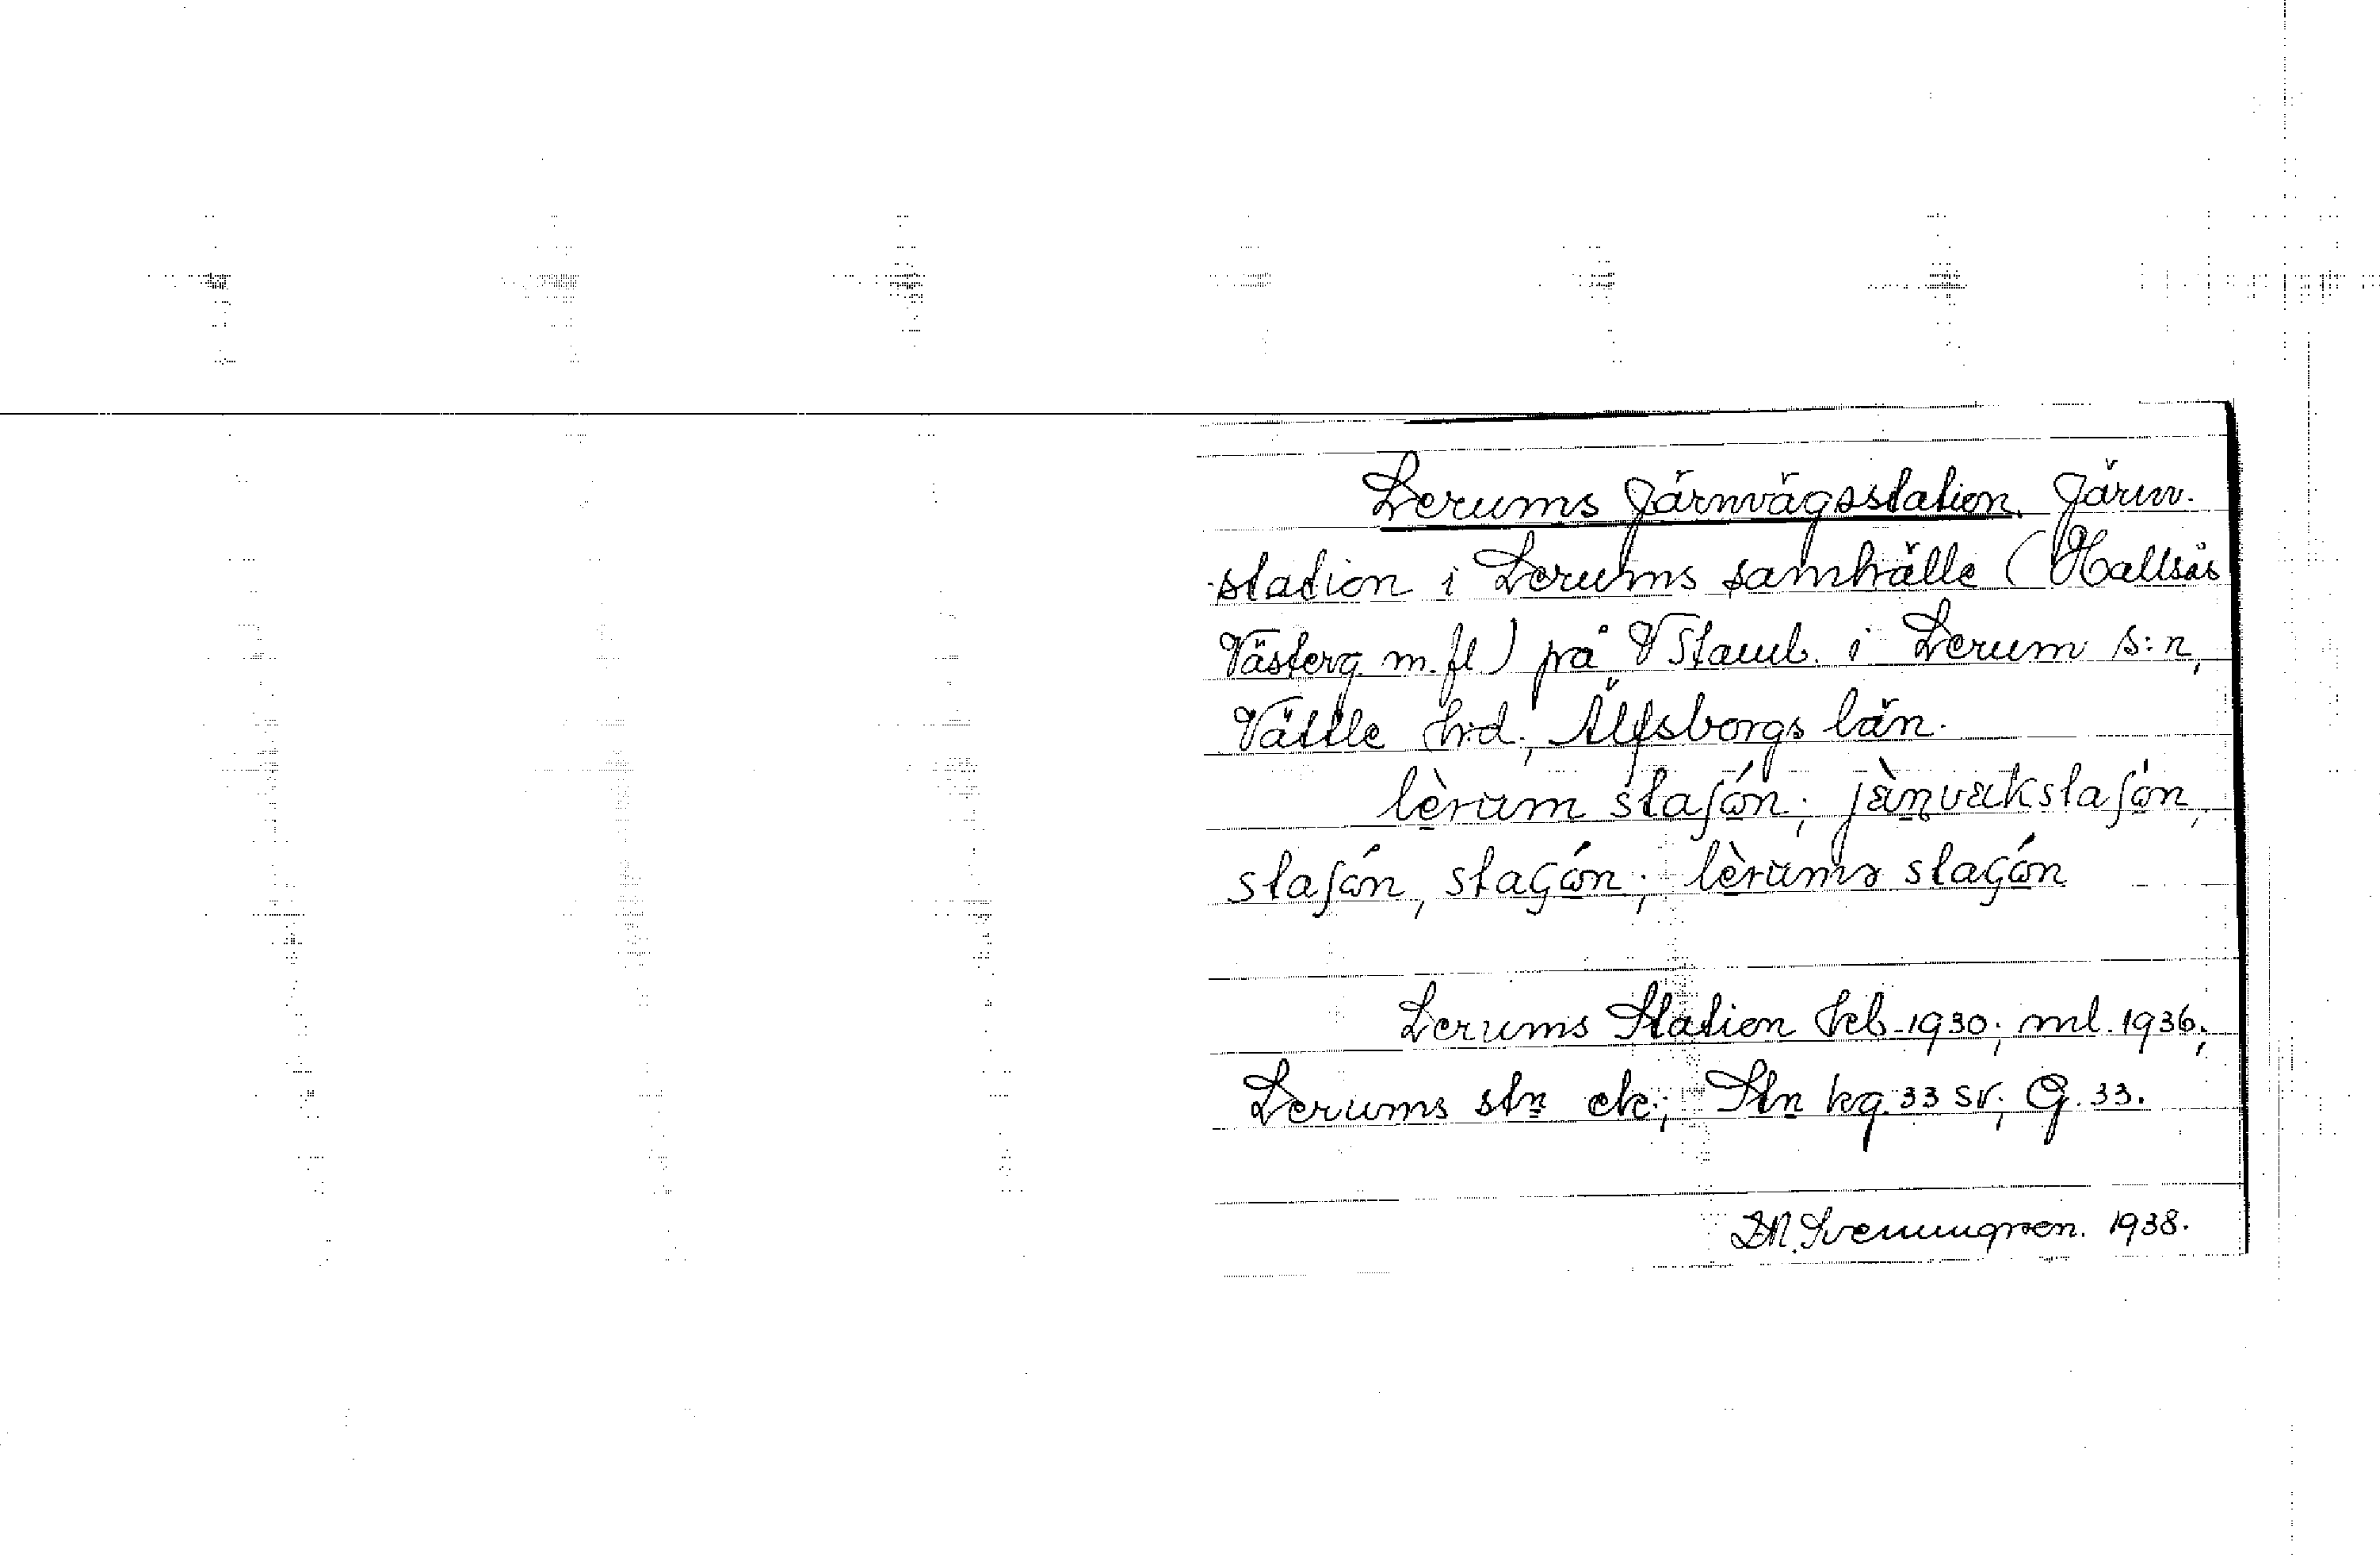 Lerums Järnvägsstation. Järnv.
station i Lerums samhälle (Hallsås
Västerg. m.fl) på V Stamb. i Lerum s:n,
Vättle hrd., Älfsborgs län.
lèrum staʃón; jæ̀ɳvækstaʃón,
staʃón, staçón; lèrums staçón
Lerums Station tel. 1930; ml. 1936;
Lerums stn ek; Stn kg. 33 sv; G. 33.
1938.